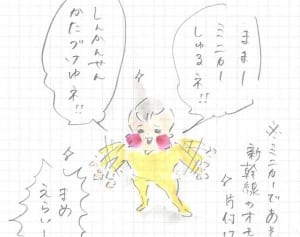 ままー
ミニカー
しゅるネ!!
しんかんせん
かたづけゆネ!!
※ミニカーであき
新幹線のオモ
片付け
まめ
えらいー